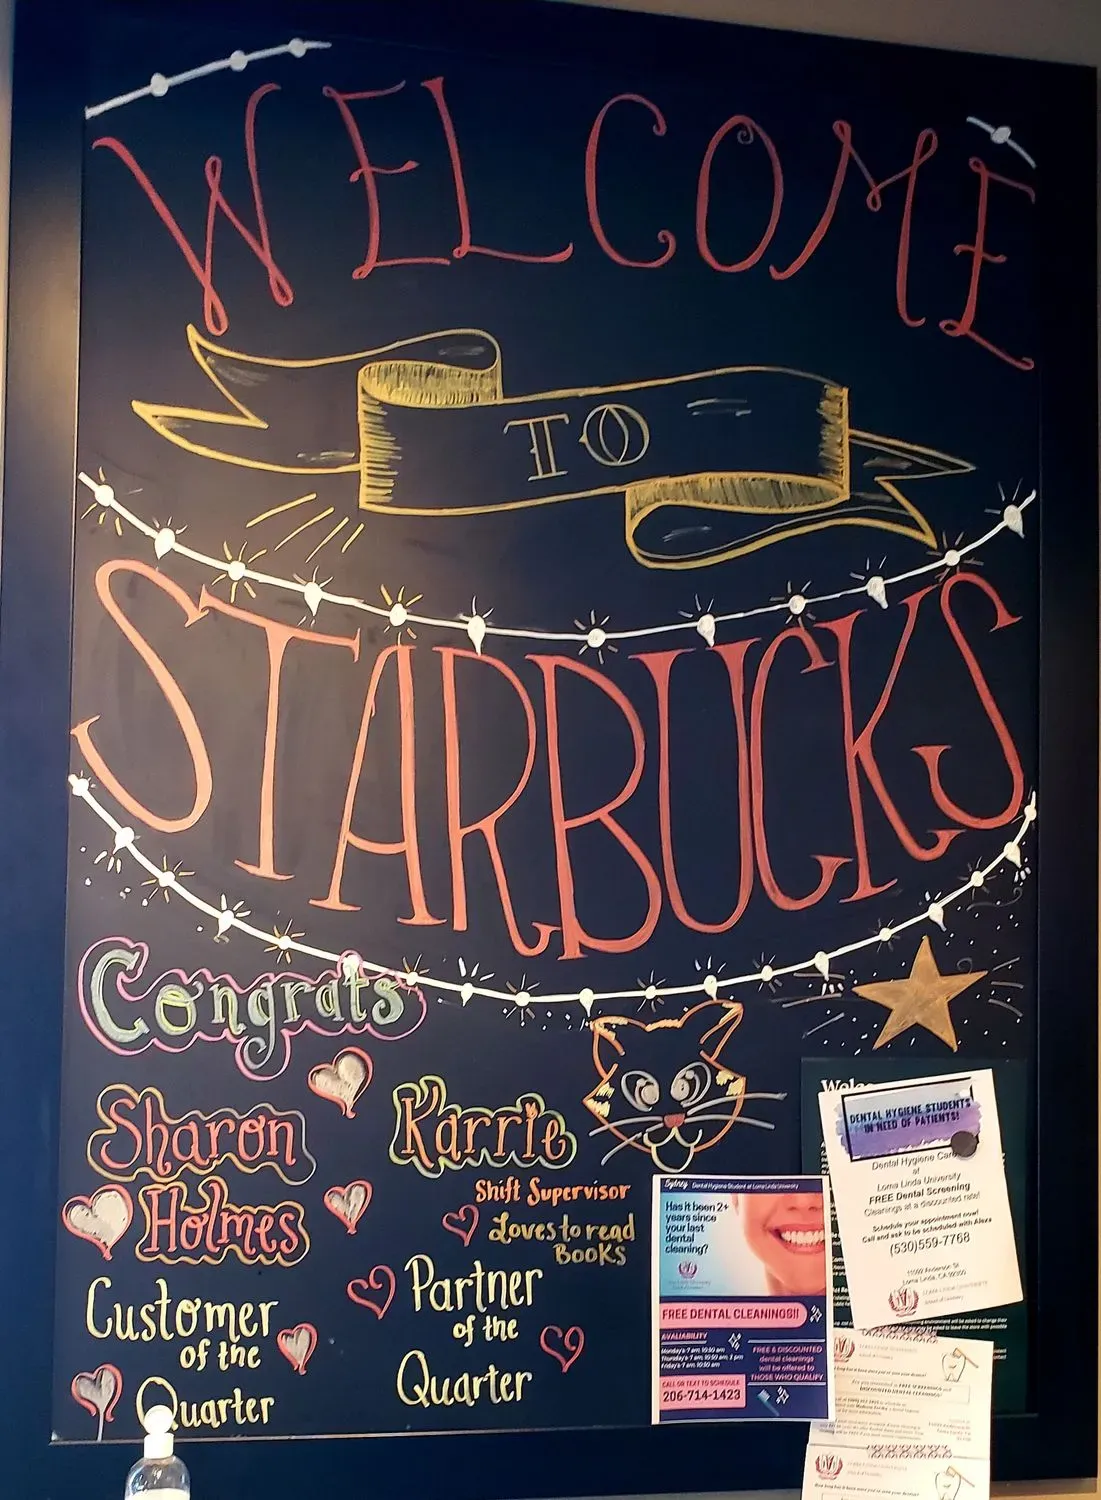 WELCOME
TO
STARBUCKS
Congrats
Sharon
Holmes
Customer
of the
Quarter
Karrie
Shift Supervisor
Loves to read
BOOKS
Partner
of the
Quarter
Sydney Dental Hygiene Student at Loma Linda University
Has it been 2+
years since
your last
dental
cleaning?
FREE DENTAL CLEANINGS!!
AVALIABILITY
FREE & DISCOUNTED
dental cleanings
will be offered to
THOSE WHO QUALIFY
CALL OR TEXT TO SCHEDULE
206-714-1423
DENTAL HYGIENE STUDENTS
IN NEED OF PATIENTS!
Dental Hygiene Care
at
Loma Linda University
FREE Dental Screening
Cleanings at a discounted rate!
Schedule your appointment now!
Call and ask to be scheduled with Alexa
(530)559-7768
Loma Linda, CA
LOMA LINDA UNIVERSITY
School of Dentistry